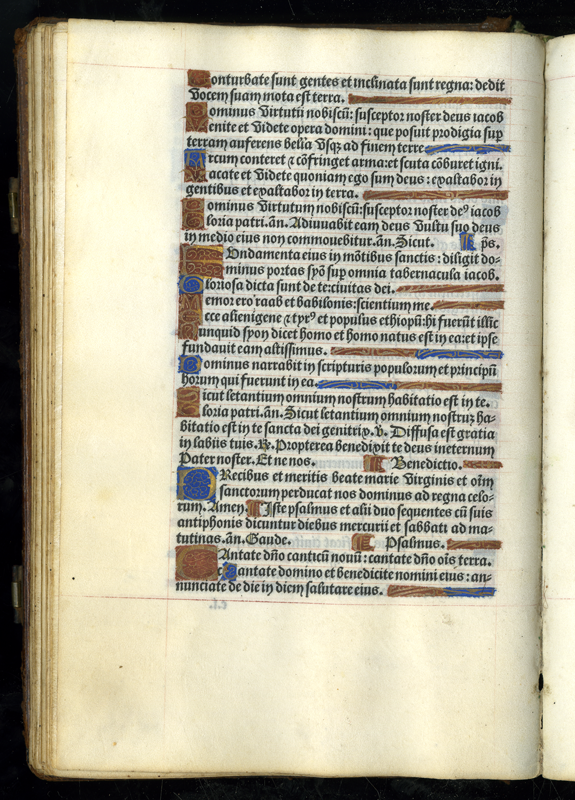 Conturbate sunt gentes et inclinata sunt regna: dedit
vocem suam mota est terra.
Dominus virtutũ nobiscũ: susceptor noster deus iacob
Venite et videte opera domini: que posuit prodigia sup̱
terram auferens bella vsq; ad finem terre
Arcum conteret ⁊ cõfringet arma: et scuta cõburet igni.
Vacate et videte quoniam ego sum deus: exaltabor in
gentibus et exaltabor in terra.
Dominus virtutum nobiscũ: susceptor noster deꝰ iacob
Gloria patri. añ. Adiuuabit eam deus vultu suo deus
in medio eius non commouebitur. añ. Sicut. p̃s.
Fondamenta eius in mõtibus sanctis: diligit do-
minus portas syõ sup̱ omnia tabernacula iacob.
Gloriosa dicta sunt de te: ciuitas dei.
Memor ero raab et babilonis: scientium me.
Ecce alienigene ⁊ tyrꝰ et populus ethiopũ: hi fuerũt illic
Nunquid syon dicet homo et homo natus est in ea: et ipse
fundauit eam altissimus.
Dominus narrabit in scripturis populorum et principũ
horum qui fuerunt in ea.
Sicut letantium omnium nostrum habitatio est in te.
Gloria patri. añ. Sicut letantium omnium nostruꝫ ha-
bitatio est in te sancta dei genitrix. ℣. Diffusa est gratia
in labiis tuis. ℟. Propterea benedixit te deus ineternum
Pater noster. Et ne nos. Benedictio.
Precibus et meritis beate marie virginis et oĩm
sanctorum perducat nos dominus ad regna celo-
rum. Amen Iste psalmus et alii duo sequentes cũ suis
antiphonis dicuntur diebus mercurii et sabbati ad ma-
tutinas. añ. Gaude. Psalmus.
Cantate dño canticũ nouũ: cantate dño oĩs terra.
Cantate domino et benedicite nomini eius: an-
nunciate de die in diem salutare eius.